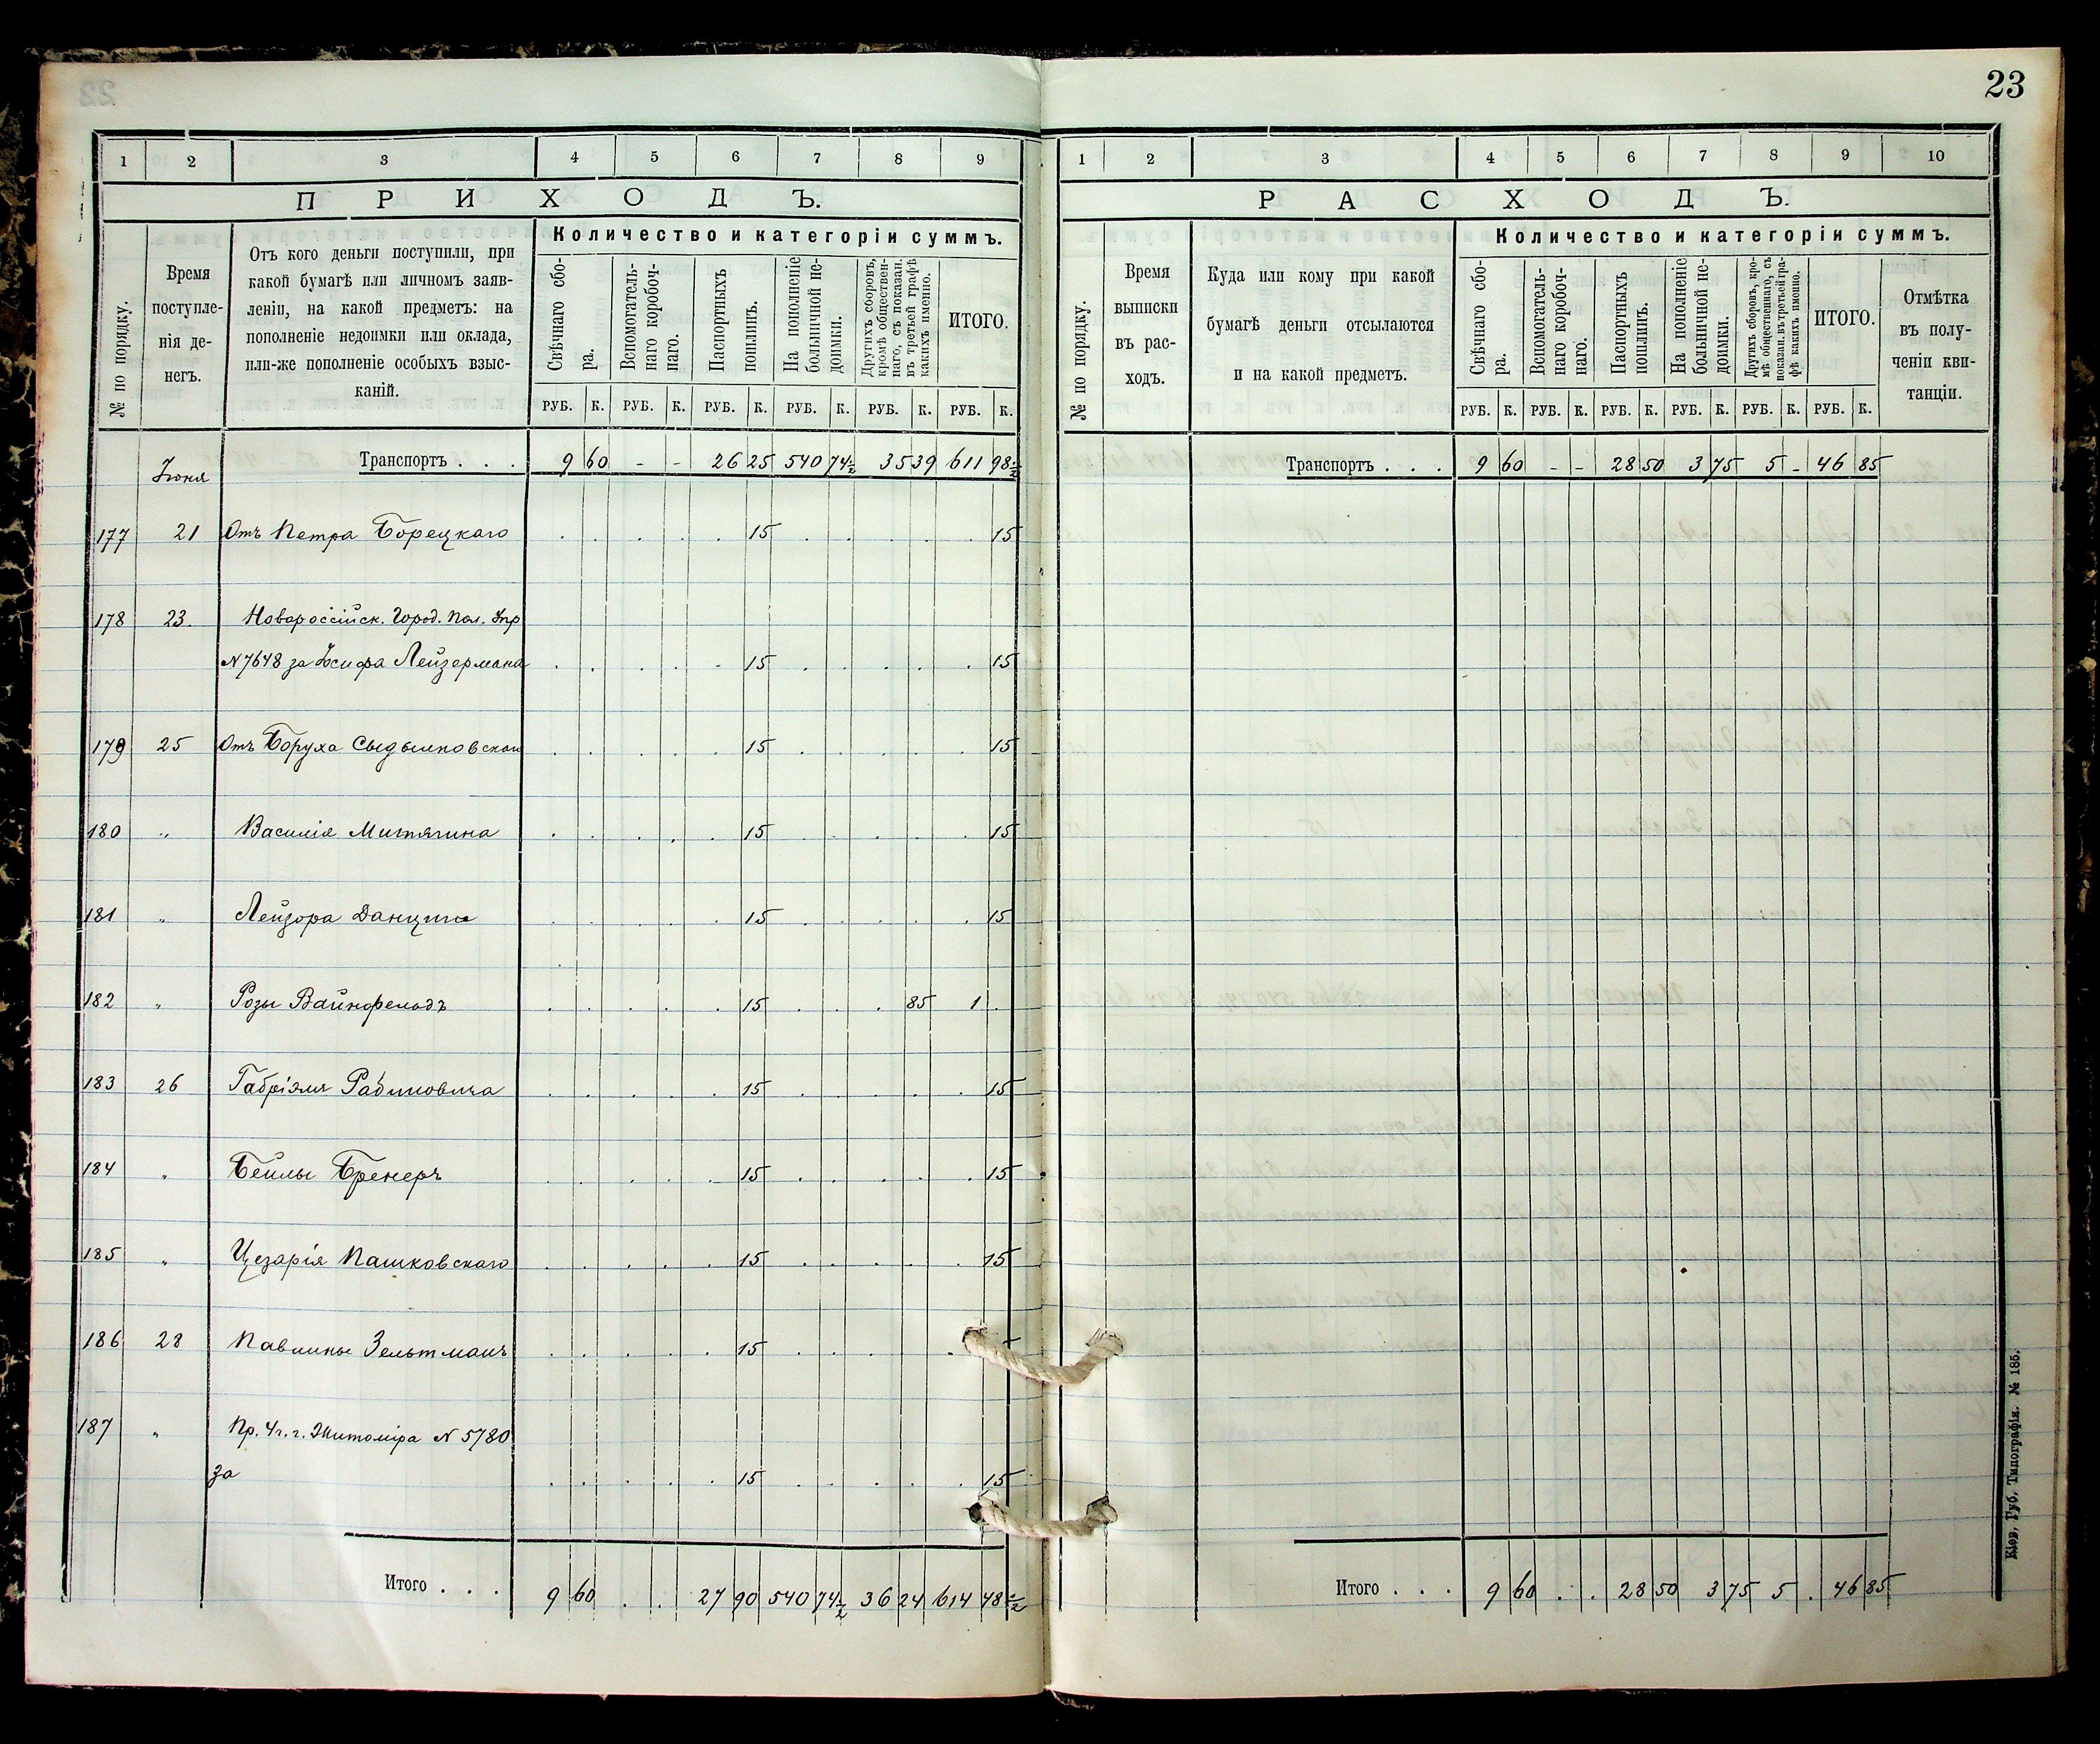 23
1 2 3 4 5 6 7 8 9
ПРИХОДЪ.
№ по порядку.
Время
поступле-
нія де-
негъ.
Отъ кого деньги поступили, при
какой бумагѣ или личномъ заяв-
леніи, на какой предметъ: на
пополненіе недоимки или оклада,
или-же пополненіе особыхъ взыс-
каній.
Количество и категоріи суммъ.
Свѣчнаго сбо-
ра.
Вспомогатель-
наго коробоч-
наго.
Паспортныхъ
пошлинъ.
На пополненіе
больничной не-
доимки.
Другихъ сборовъ,
кромѣ обществен-
наго, съ показан.
въ третьей графѣ
какихъ именно.
ИТОГО.
РУБ. К. РУБ. К. РУБ. К. РУБ. К. РУБ. К. РУБ. К.
Транспортъ . . . 9 60 - - 26 25 540 74½ 35 39 611 98½
Іюня
177 21 Отъ Петра Борецкаго . . . . . 15 . . . . . 15
178 23. Новороссійск. Город. Пол. Упр
N 7648 за Іосифа Лейзермана . . . . . 15 . . . . . 15
179 25 Отъ Боруха . . . . . 15 . . . . . 15
180 " Василія Митягина . . . . . 15 . . . . 15
181 " Лейзора Данцига . . . . . 15 . . . . . 15
182 " Розы Вайнфельдъ . . . . . 15 . . . 85 1 .
183 26 Габріэля Рабиновича . . . . . 15 . . . . . 15
184 " Бейлы Бренеръ . . . . . 15 . . . . . 15
185 " Цезарія Пашковскаго . . . . . 15 . . . . . 15
186 28 Павлины Зельтманъ . . . . . 15 . . . .
187 " Пр. 4 г. г. Житоміра N 5780
за . . . . . 15 . . . . . 15
Итого . . . 9 60 . . 27 90 540 74½ 36 24 614 48½
1 2 3 4 5 6 7 8 9 10
РАСХОДЪ.
№ по порядку.
Время
выписки
въ рас-
ходъ.
Куда или кому при какой
бумагѣ деньги отсылаются
и на какой предметъ.
Количество и категоріи суммъ.
Свѣчнаго сбо-
ра.
Вспомогатель-
наго коробоч-
наго.
Паспортныхъ
пошлинъ.
На пополненіе
больничной не-
доимки.
Другихъ сборовъ, кро-
мѣ общественнаго, съ
показан. въ третьей гра-
фѣ какихъ именно.
ИТОГО.
Отмѣтка
въ полу-
ченіи кви-
танціи.
РУБ. К. РУБ. К. РУБ. К. РУБ. К. РУБ. К. РУБ. К.
Транспортъ . . . 9 60 - - 28 50 3 75 5 - 46 85
Итого . . . 9 60 . . 28 50 3 75 5 . 46 85
Кіев. Губ. Типографія. № 185.